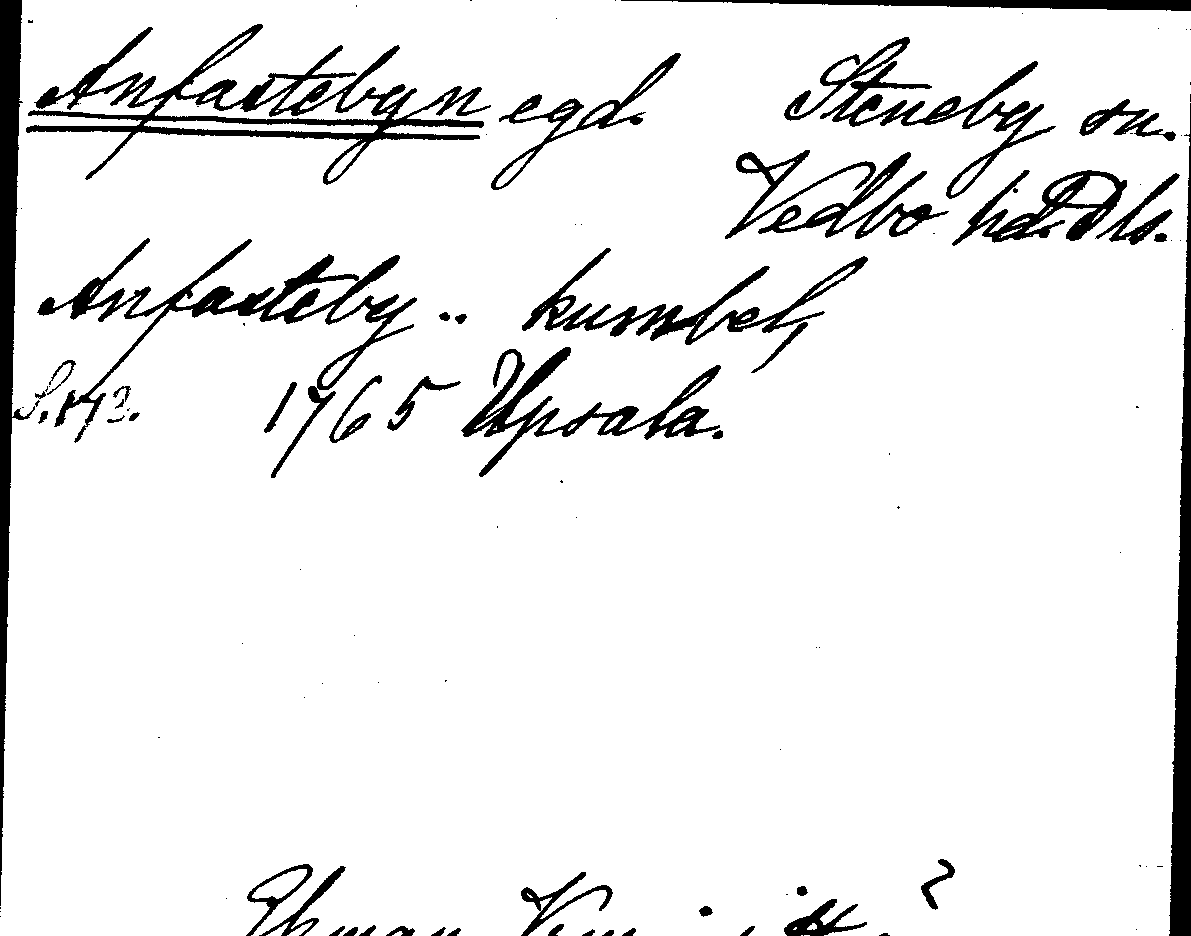 Anfastebyn egd. Steneby sn.
Vedbo hd. Dls.
Anfasteby .. kumbel,
S. 173. 1765 Upsala.
Ekman